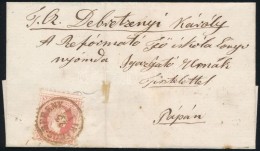 T. Cz. Debretzenyi Károly
A Reformáto Fő iskola könyv
nyomda Igazgató Urnák
Tisztelettel
Pápán